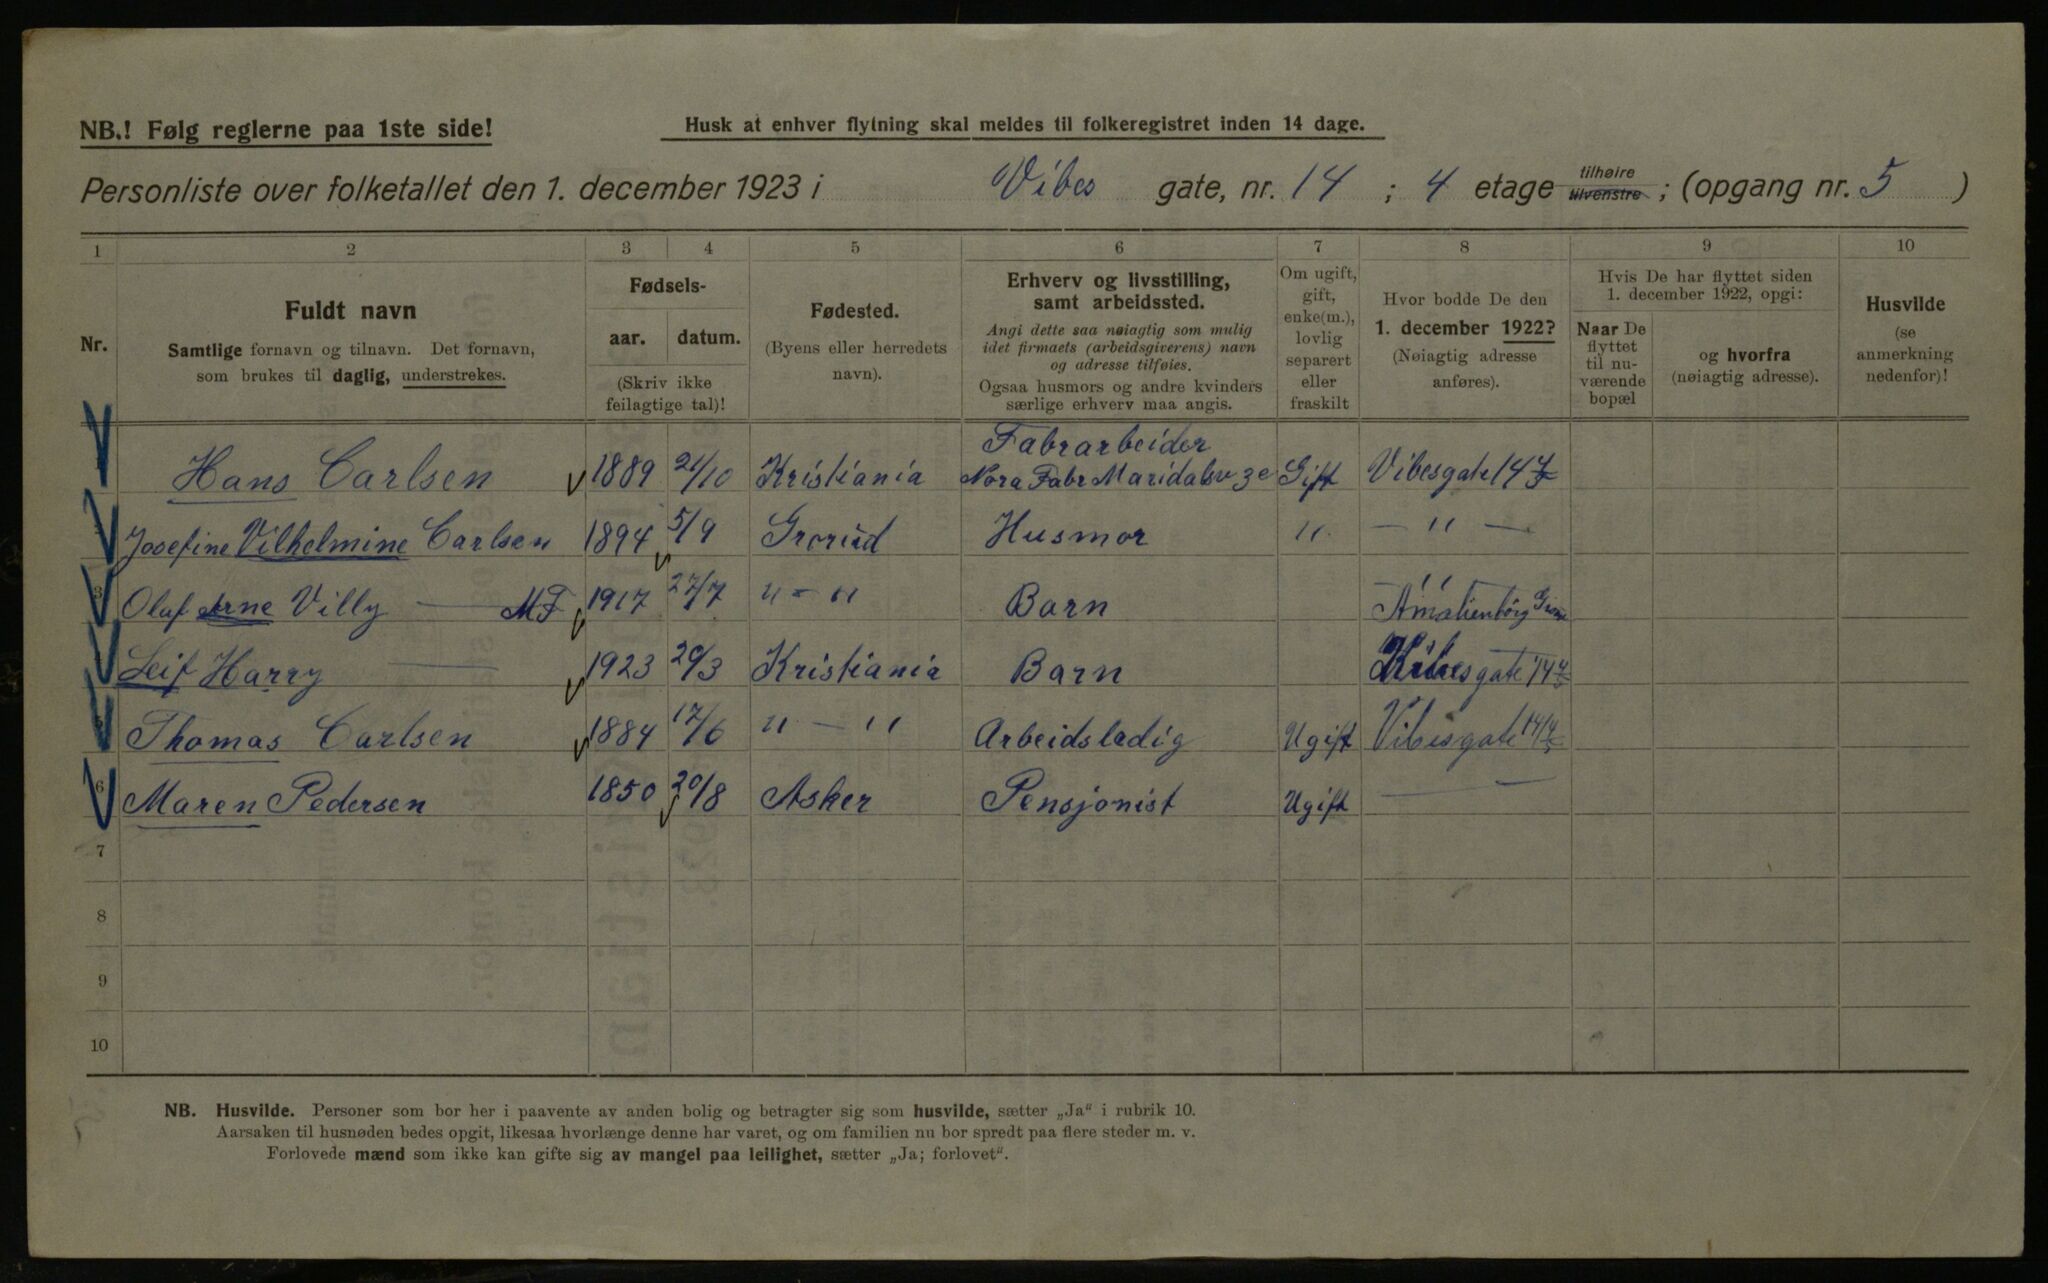 NB.! Følg reglerne paa 1ste side!
Husk at enhver flytning skal meldes til folkeregistret inden 14 dage.
Personliste over folketallet den 1. december 1923 i Vibes gate, nr. 14 ; 4 etage tilhøire tilvenstre ; (opgang nr. 5 )
1 2 3 4 5 6 7 8 9 10
Nr.
Fuldt navn
Samtlige fornavn og tilnavn. Det fornavn,
som brukes til daglig, understrekes.
Fødsels-
aar. datum.
(Skriv ikke
feilagtige tal)!
Fødested.
(Byens eller herredets
navn).
Erhverv og livsstilling,
samt arbeidssted.
Angi dette saa nøiagtig som mulig
idet firmaets (arbeidsgiverens) navn
og adresse tilføies.
Ogsaa husmors og andre kvinders
særlige erhverv maa angis.
Om ugift,
gift,
enke(m.),
lovlig
separert
eller
fraskilt
Hvor bodde De den
1. december 1922?
(Nøiagtig adresse
anføres).
Hvis De har flyttet siden
1. december 1922, opgi:
Naar De
flyttet
til nu-
værende
bopæl
og hvorfra
(nøiagtig adresse).
Husvilde
(se
anmerkning
nedenfor)!
Fabrarbeider
Hans Carlsen 1889 21/10 Kristiania Nora Fabr Maridalsv 3e Gift Vibesgate 14
Josefine Vilhelmine Carlsen 1894 5/9 Grorud Husmor " — " —
3 Olaf Arne Villy — MF 1917 27/7 " — " Barn Amalienborg
Leif Harry — 1923 20/3 Kristiania Barn Vibesgate 14
5 Thomas Carlsen 1884 17/6 " — " Arbeidsledig Ugift Vibesgate 14
6 Maren Pedersen 1850 20/8 Asker Pensjonist Ugift —
7
8
9
10
NB. Husvilde. Personer som bor her i paavente av anden bolig og betragter sig som husvilde, sætter „Ja“ i rubrik 10.
Aarsaken til husnøden bedes opgit, likesaa hvorlænge denne har varet, og om familien nu bor spredt paa flere steder m. v.
Forlovede mænd som ikke kan gifte sig av mangel paa leilighet, sætter „Ja; forlovet“.